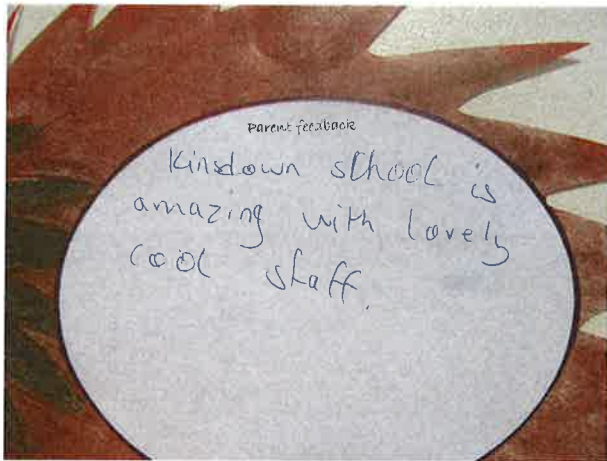 Parent feedback
Kinsdown school is
amazing with lovely
cool staff.